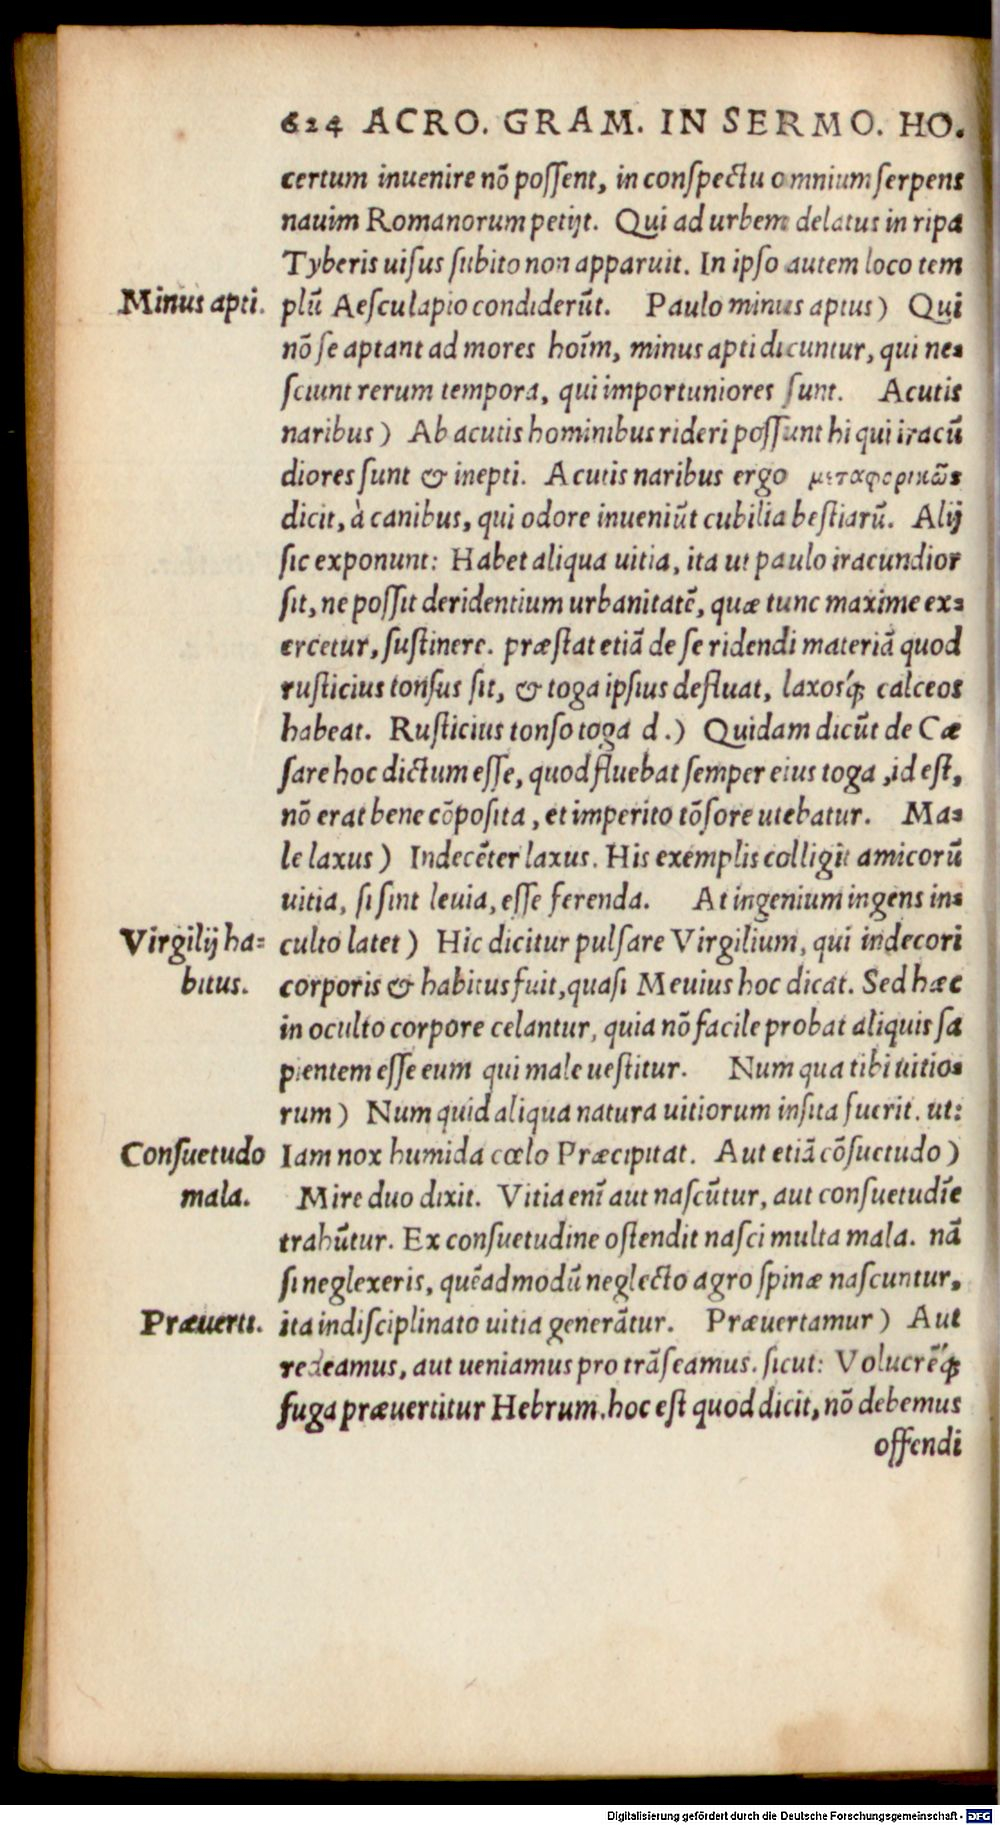 624 ACRO. GRAM. IN SERMO. HO.
certum inuenire nõ possent, in conspectu omnium serpens
nauim Romanorum petijt. Qui ad urbem delatus in ripa
Tyberis uisus subito non apparuit. In ipso autem loco tem
Minus apti.
plũ Aesculapio condiderũt. Paulo minus aptus) Qui
nõ se aptant ad mores hoĩm, minus apti dicuntur, qui ne=
sciunt rerum tempora, qui importuniores sunt. Acutis
naribus) Ab acutis hominibus rideri possunt hi qui iracũ
diores sunt & inepti. Acutis naribus ergo μεταφορικῶς
dicit, à canibus, qui odore inueniũt cubilia bestiarũ. Alij
sic exponunt: Habet aliqua uitia, ita ut paulo iracundior
sit, ne possit deridentium urbanitatẽ, quæ tunc maxime ex=
ercetur, sustinere. præstat etiã de se ridendi materiã quod
rusticius tonsus sit, & toga ipsius defluat, laxosq́; calceos
habeat. Rusticius tonso toga d.) Quidam dicũt de Cæ
sare hoc dictum esse, quod fluebat semper eius toga, id est,
nõ erat bene cõposita, et imperito tõsore utebatur. Ma=
le laxus) Indecẽter laxus. His exemplis colligit amicorũ
uitia, si sint leuia, esse ferenda. At ingenium ingens in=
Virgilij ha=
bitus.
culto latet) Hic dicitur pulsare Virgilium, qui indecori
corporis & habitus fuit, quasi Meuius hoc dicat. Sed hæc
in oculto corpore celantur, quia nõ facile probat aliquis sa
pientem esse eum qui male uestitur. Num qua tibi uitio=
rum) Num quid aliqua natura uitiorum insita fuerit. ut:
Consuetudo
mala.
Iam nox humida cœlo Præcipitat. Aut etiã cõsuetudo)
Mire duo dixit. Vitia enĩ aut nascũtur, aut consuetudĩe
trahũtur. Ex consuetudine ostendit nasci multa mala. nã
si neglexeris, quẽadmodũ neglecto agro spinæ nascuntur,
Præuerti.
ita indisciplinato uitia generãtur. Præuertamur) Aut
redeamus, aut ueniamus pro trãseamus. sicut: Volucrẽq́;
fuga præuertitur Hebrum. hoc est quod dicit, nõ debemus
offendi
Digitalisierung gefördert durch die Deutsche Forschungsgemeinschaft - DFG